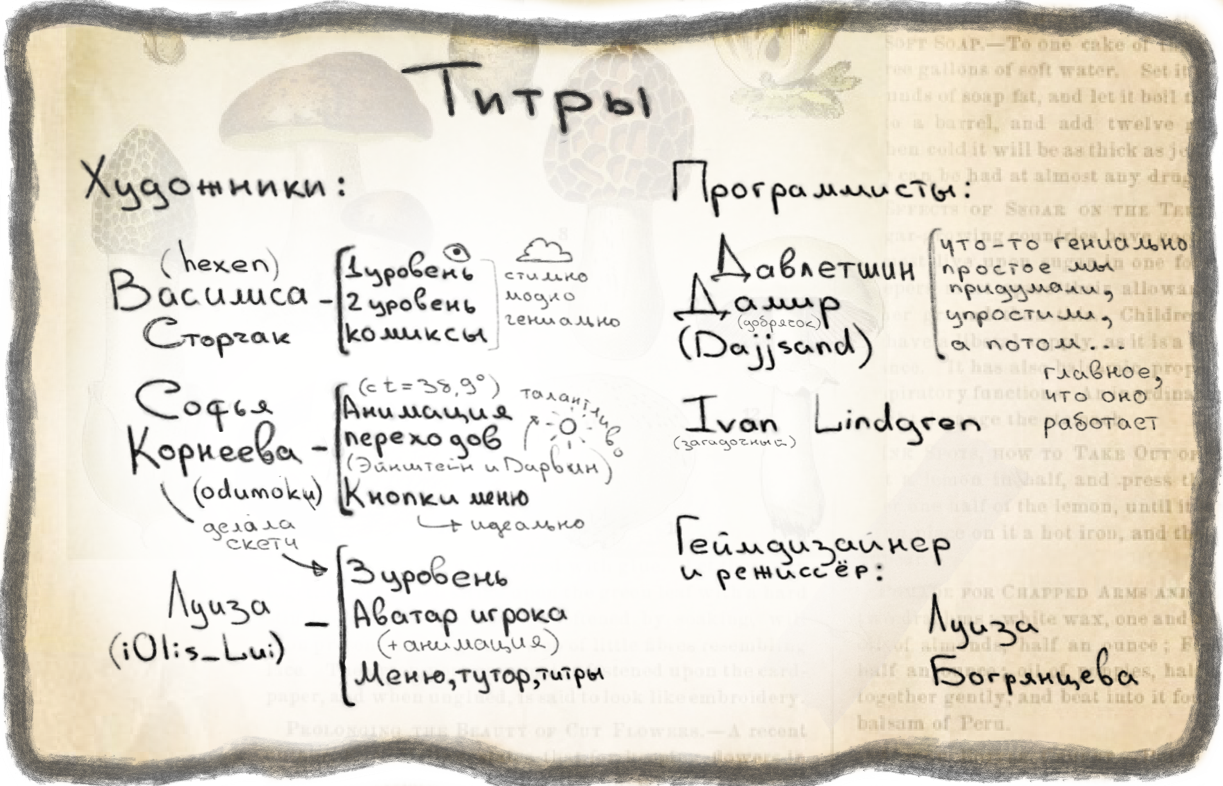 Титры
Художники:
(hexen)
Василиса
Сторчак
–
1 уровень
2 уровень
комиксы
стильно
модно
гениально
Софья
Корнеева –
(odumoku)
(с t=38,9°)
Анимация
переходов
(Эйнштейн и Дарвин)
Кнопки меню
талантливо
идеально
делала
скетч
Луиза
(iOlis_Lui)
–
3 уровень
Аватар игрока
(+анимация)
Меню, тутор, титры
Программисты:
Давлетшин
Дамир
(добрясок)
(Dajjsand)
что-то гениально
простое мы
придумали,
упростили,
а потом...
главное,
что оно
работает
Ivan Lindgren
(загадочный)
Геймдизайнер
и режиссёр:
Луиза
Богрянцева
SOFT SOAP.—To one cake of
gallons of soft water. Set it
of soap fat, and let it boil
a barrel, and add twelve
cold it will be as thick as
can be had at almost any
EFFECTS OF SUGAR ON THE
in one
allow
Children
it is a
has also
the
HOW TO TAKE OUT
half, and press
half of the lemon, until it
on it a hot iron, and
FOR CHAPPED ARMS AND
white wax, one and
of almonds, half an ounce;
half an ounce; oil of
together gently, and beat into it
balsam of Peru.
upon the card-
paper, and when
is said to look like embroidery.
PROLONGING THE BEAUTY OF CUT FLOWERS.—A recent
flowers in